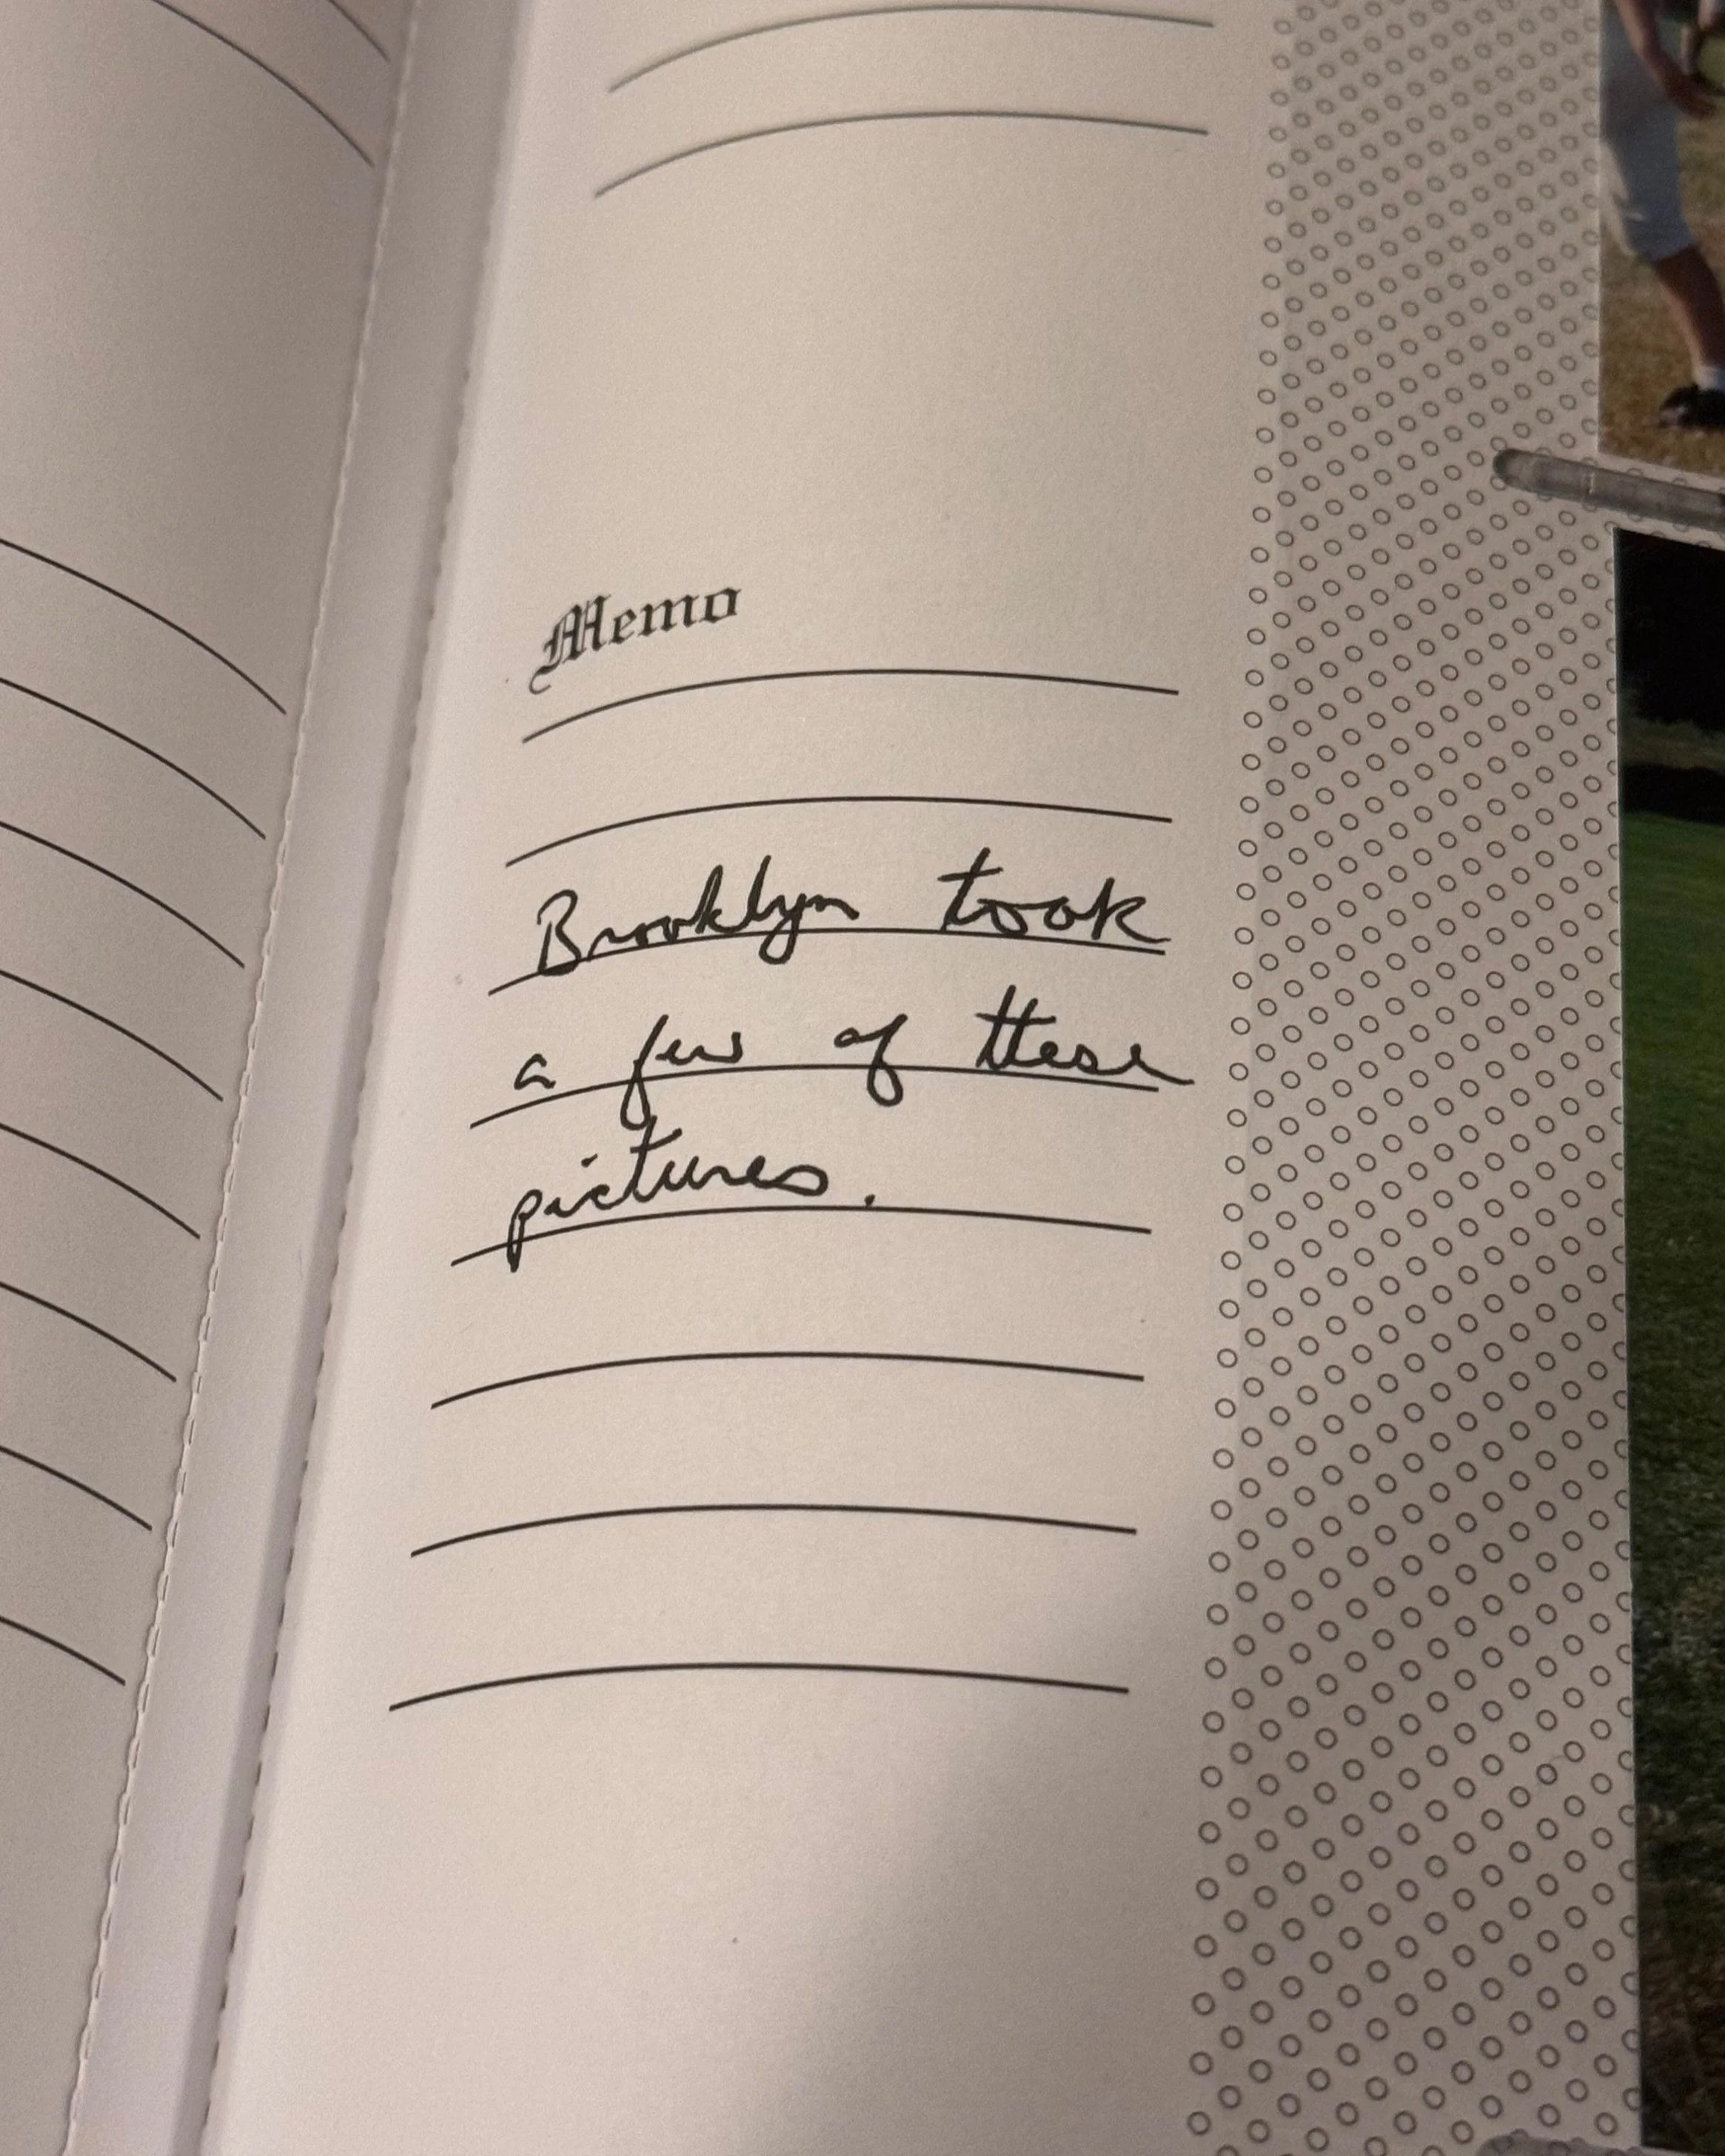 Memo
Brooklyn took
a few of these
pictures.